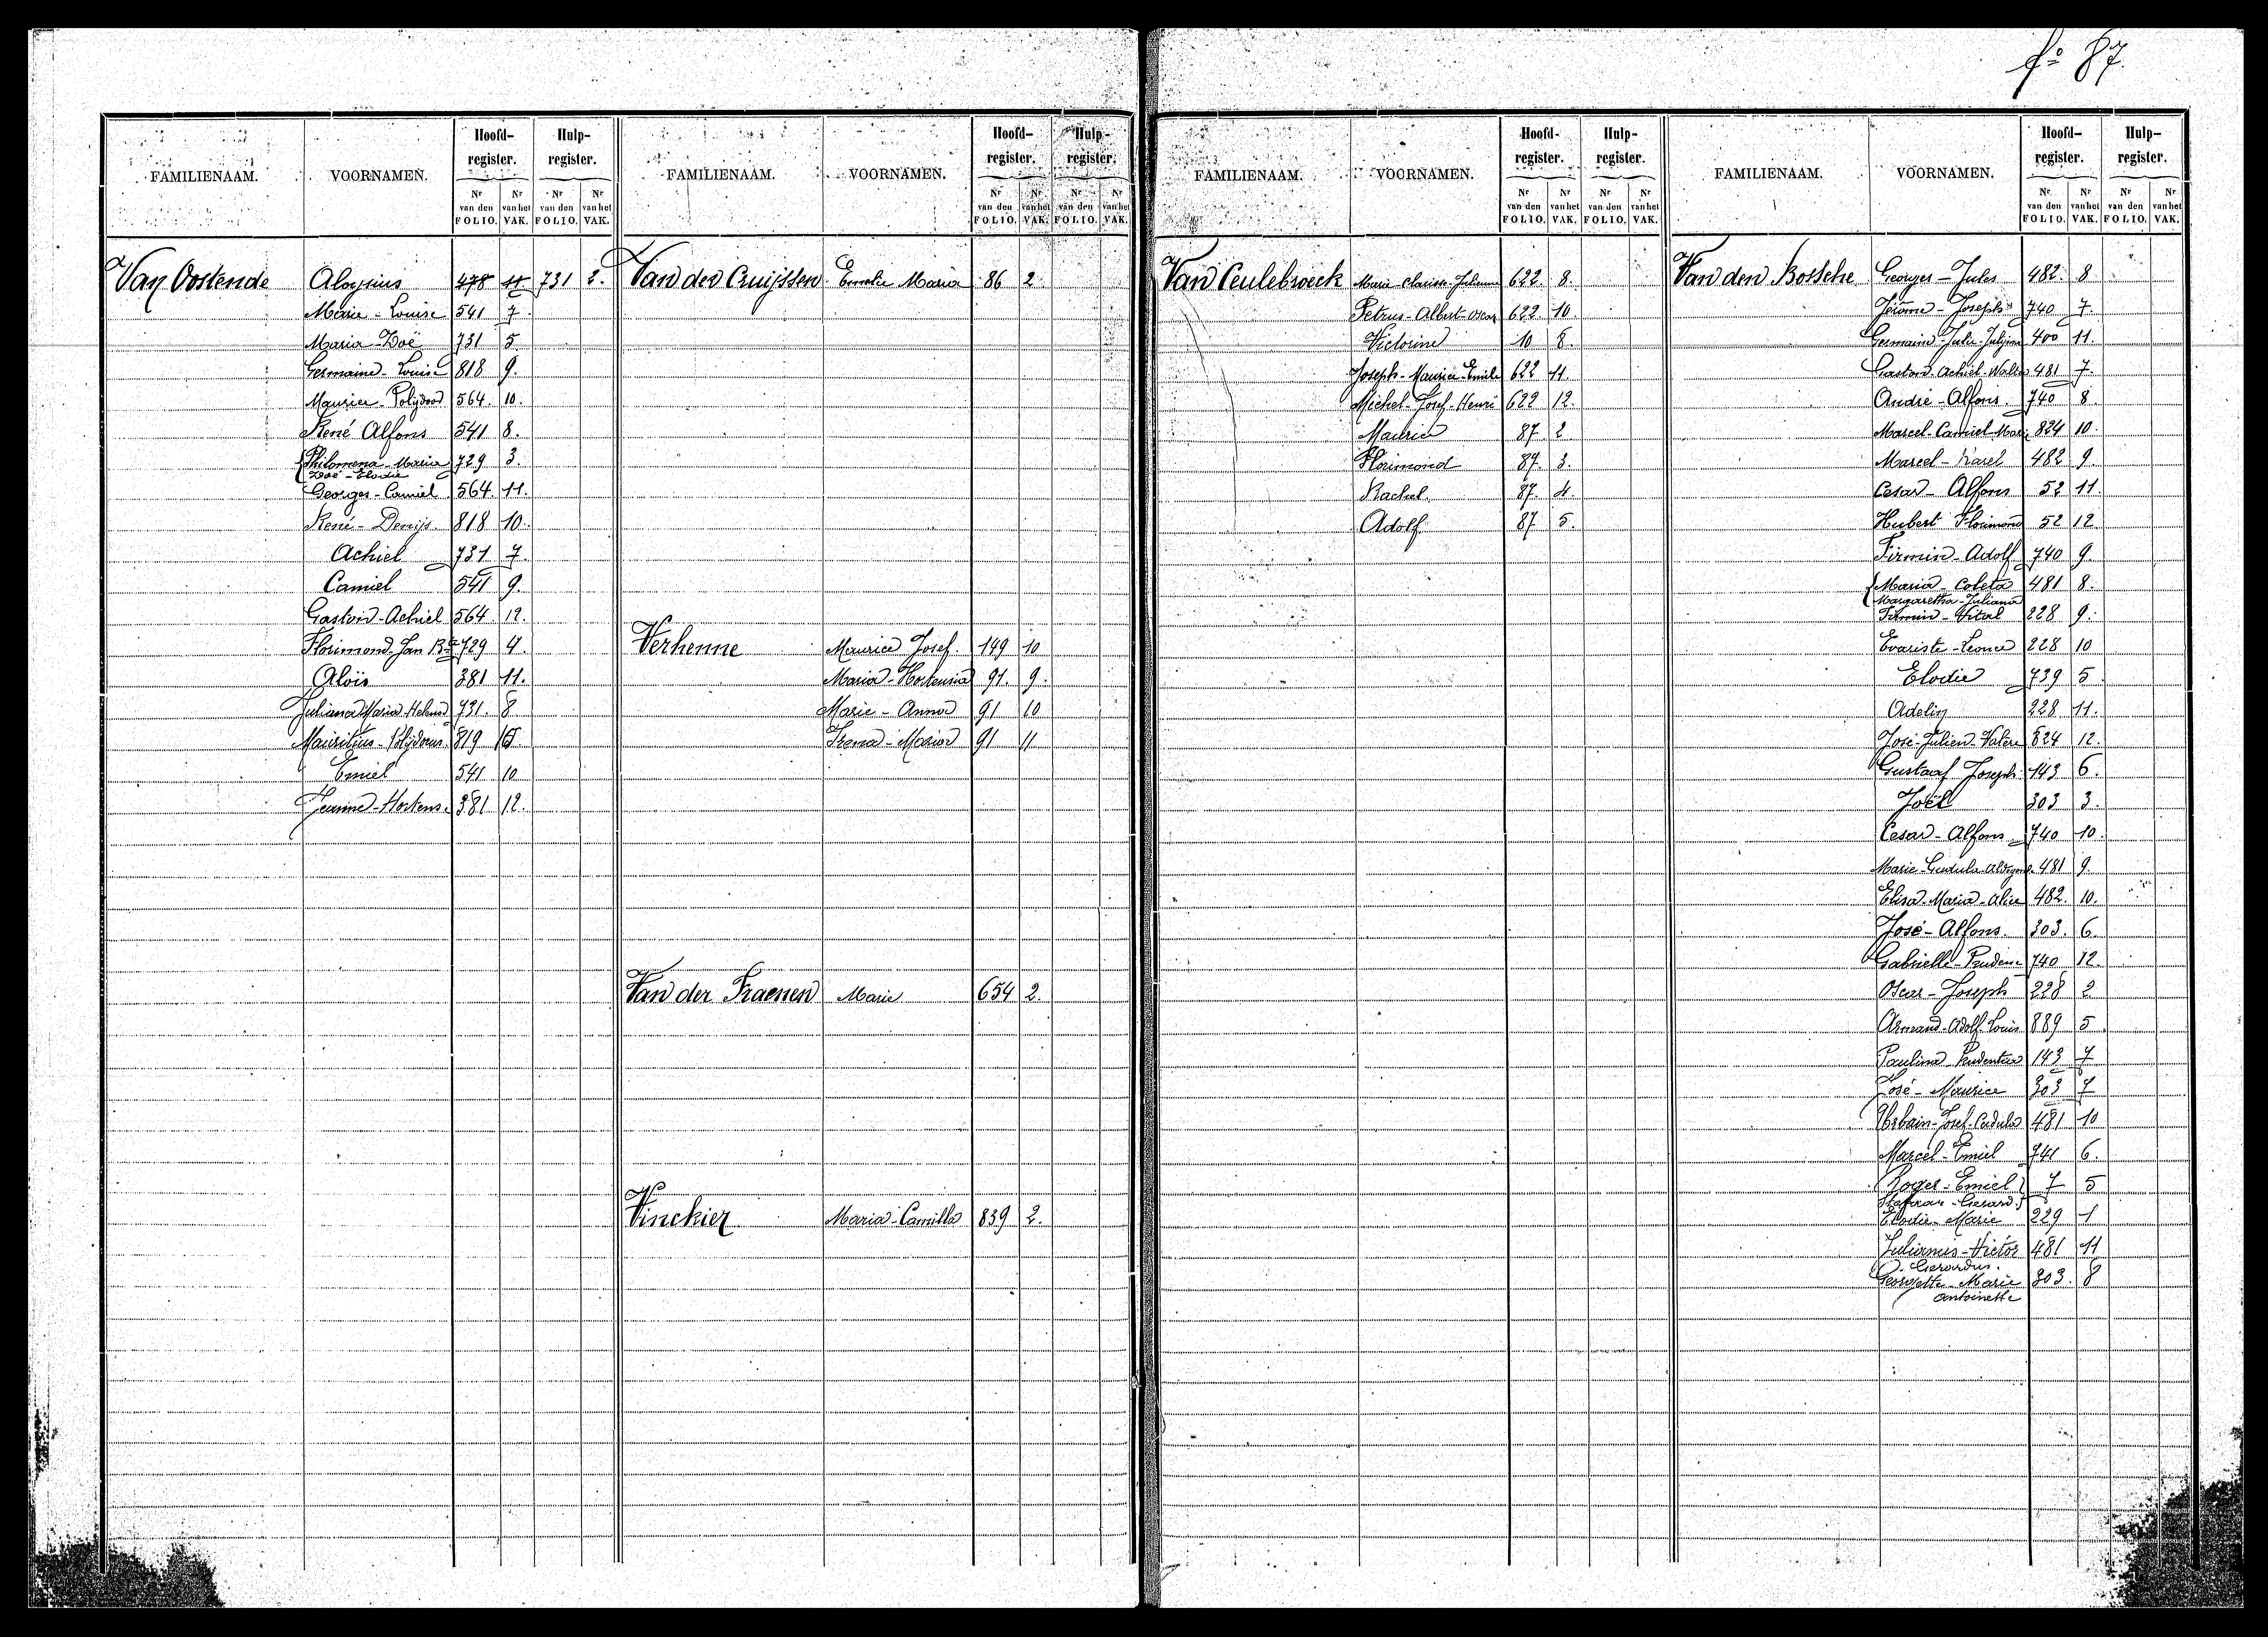 fº 87.
FAMILIENAAM. VOORNAMEN. Hoofd-register. Hulp-register.
Nr van den FOLIO. Nr van het VAK. Nr van den FOLIO. Nr van het VAK.
Van Oostende Aloysius 478 11. 731 2.
Marie-Louise 541 7.
Maria-Zoë 731 5.
Germaine-Louise 818 9.
Maurice-Polydoor 564. 10.
René Alfons 541 8.
Philomena-Maria 729 3.
Zoë-Elodie
Georges-Camiel 564. 11.
René-Denijs. 818 10.
Achiel 731 7.
Camiel 541 9.
Gaston-Achiel 564. 12.
Florimond-Jan Bte 729 4.
Aloïs 381 11.
Juliana Maria-Helena 731. 8
Mauritius-Polydorus. 819
Emiel 541 10
Jeanne-Hortens. 381 12.
FAMILIENAAM. VOORNAMEN. Hoofd-register. Hulp-register.
Nr van den FOLIO. Nr van het VAK. Nr van den FOLIO. Nr van het VAK.
Van der Cruijssen Emelie Maria 86 2.
Verhenne Maurice Josef. 149 10
Maria-Hortensia 91. 9.
Marie-Anna 91 10
Irena-Maria 91 11
Van der Fraenen Marie 654 2.
Vinckier Maria-Camilla 839 2.
FAMILIENAAM. VOORNAMEN. Hoofd-register. Hulp-register.
Nr van den FOLIO. Nr van het VAK. Nr van den FOLIO. Nr van het VAK.
Van Ceulebroeck Marie-Clarisse-Julienne 622. 8.
Petrus-Albert-Oscar 622 10.
Victorine 10 8.
Joseph-Maurice-Emile 622 11.
Michel-Josef-Henri 622 12.
Maurice 87. 2
Florimond 87. 3.
Rachel. 87. 4.
Adolf 87 5.
FAMILIENAAM. VOORNAMEN. Hoofd-register. Hulp-register.
Nr van den FOLIO. Nr van het VAK. Nr van den FOLIO. Nr van het VAK.
Van den Bossche Georges-Jules 482. 8
Jérome-Joseph 740 7.
Germaine-Julie 400 11.
Gaston-Achiel-Walter 481 7.
André-Alfons. 740 8.
Marcel-Camiel-Marie 824 10.
Marcel-Karel 482 9.
Cesar-Alfons 52 11.
Hubert Florimond 52 12
Firmin-Adolf 740 9.
Maria-Coleta 481 8.
Margaretha-Juliana
Firmin-Vital 228 9.
Evariste-Leonce 228 10
Elodie 739 5
Adelin 228 11.
José-Julien-Valère 824 12.
Gustaaf Joseph 143 6.
Joël 303 3.
Cesar-Alfons 740 10.
Marie-Gudula-Aldegonde 481 9.
Elisa-Maria-Alice 482. 10.
José-Alfons. 303. 6.
Gabrielle-Prudence 740 12.
Oscar-Joseph 228 2
Armand-Adolf-Louis 889 5.
Paulina-Prudentia 143 7
José-Maurice 303 7
Urbain-Josef-Gudula 481 10
Marcel-Emiel 741 6.
Roger-Emiel 7 5
Gerard.
Elodie-Marie 229 1
Julianus-Victor 481 11
-Gerardus.
Georgette-Marie 303. 8
Antoinette